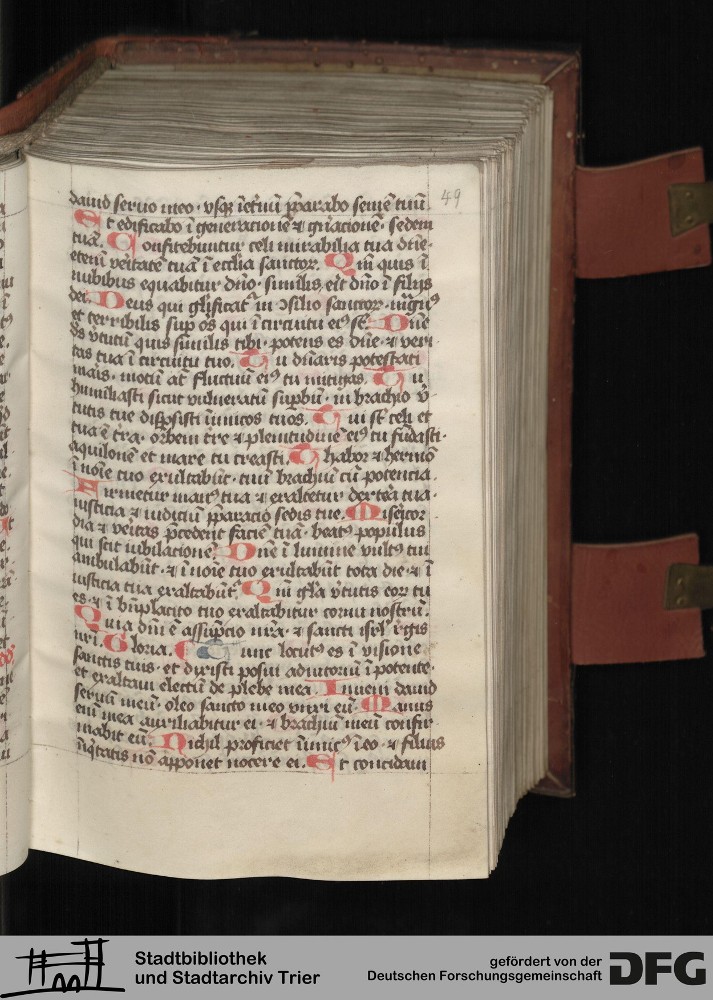 dauid seruo meo · vsqꝫ ĩet̾nũ p̃parabo semẽ tuũ
Et edificabo ĩ generacionẽ ⁊ gn̾acionẽ · sedem
tuã. Confitebuntur celi mirabilia tua dñe ·
etenĩ veritatẽ tuã ĩ eccĩia sanctoꝝ. Qm̃ quis ĩ
nubibus equabitur dño · similis erit dño ĩ filijs
dei. Deus qui gl̃ificat̾ ĩ ↄsilio sanctoꝝ · magnꝰ
et terribilis sup̾ oẽs qui ĩ circuitu eiꝰ st̃. Dñe
dẽ v̾tutũ quis similis tibi · potens es dñe · ⁊ veri
tas tua ĩ circuitu tuo. Tu dñaris potestati
maris · motũ aũt fluctuũ eiꝰ tu mitigas. Tu
humiliasti sicut vulneratũ supbũ · in brachio v̾
tutis tue disp̾sisti inimicos tuos. Tui st̃ celi et
tua ẽ t̾ra · orbem t̾re ⁊ plenitudinẽ eiꝰ tu fũdasti ·
aquilonẽ et mare tu creasti. Thabor ⁊ hermõ
ĩ noĩe tuo exultabũt · tuũ brachiũ cũ potencia ·
Firmetur manꝰ tua ⁊ exaltetur dext̾a tua ·
iusticia ⁊ iudiciũ p̃paracio sedis tue. Miseꝛicor
dia ⁊ veritas p̃cedent faciẽ tuã · beatꝰ populus
qui scit iubilacionẽ. Dñe ĩ lumine vultꝰ tui
ambulabũt · ⁊ ĩ noĩe tuo exultabũt tota die · ⁊ ĩ
iusticia tua exaltabũt̾. Qm̃ gl̃a v̾tutis eoꝝ tu
es · ⁊ ĩ bñplacito tuo exaltabitur cornu nostrũ.
Quia dñi ẽ assũpcio nr̃a · ⁊ sancti isrl̃ r̾gis
nr̃i. Gloria. Tunc locutꝰ es ĩ visione
sanctis tuis · et dixisti posui adiutoriũ ĩ potente ·
et exaltaui electũ de plebe mea. Inueni dauid
seruũ meũ · oleo sancto meo vnxi eũ. Manus
eñi mea auxiliabitur ei · ⁊ brachiũ meũ confir
mabit eũ. Nichil proficiet inimicꝰ ĩ eo · ⁊ filius
iniq̃tatis nõ apponet nocere ei. Et concidam
49
Stadtbibliothek
und Stadtarchiv Trier
gefördert von der
Deutschen Forschungsgemeinschaft
DFG